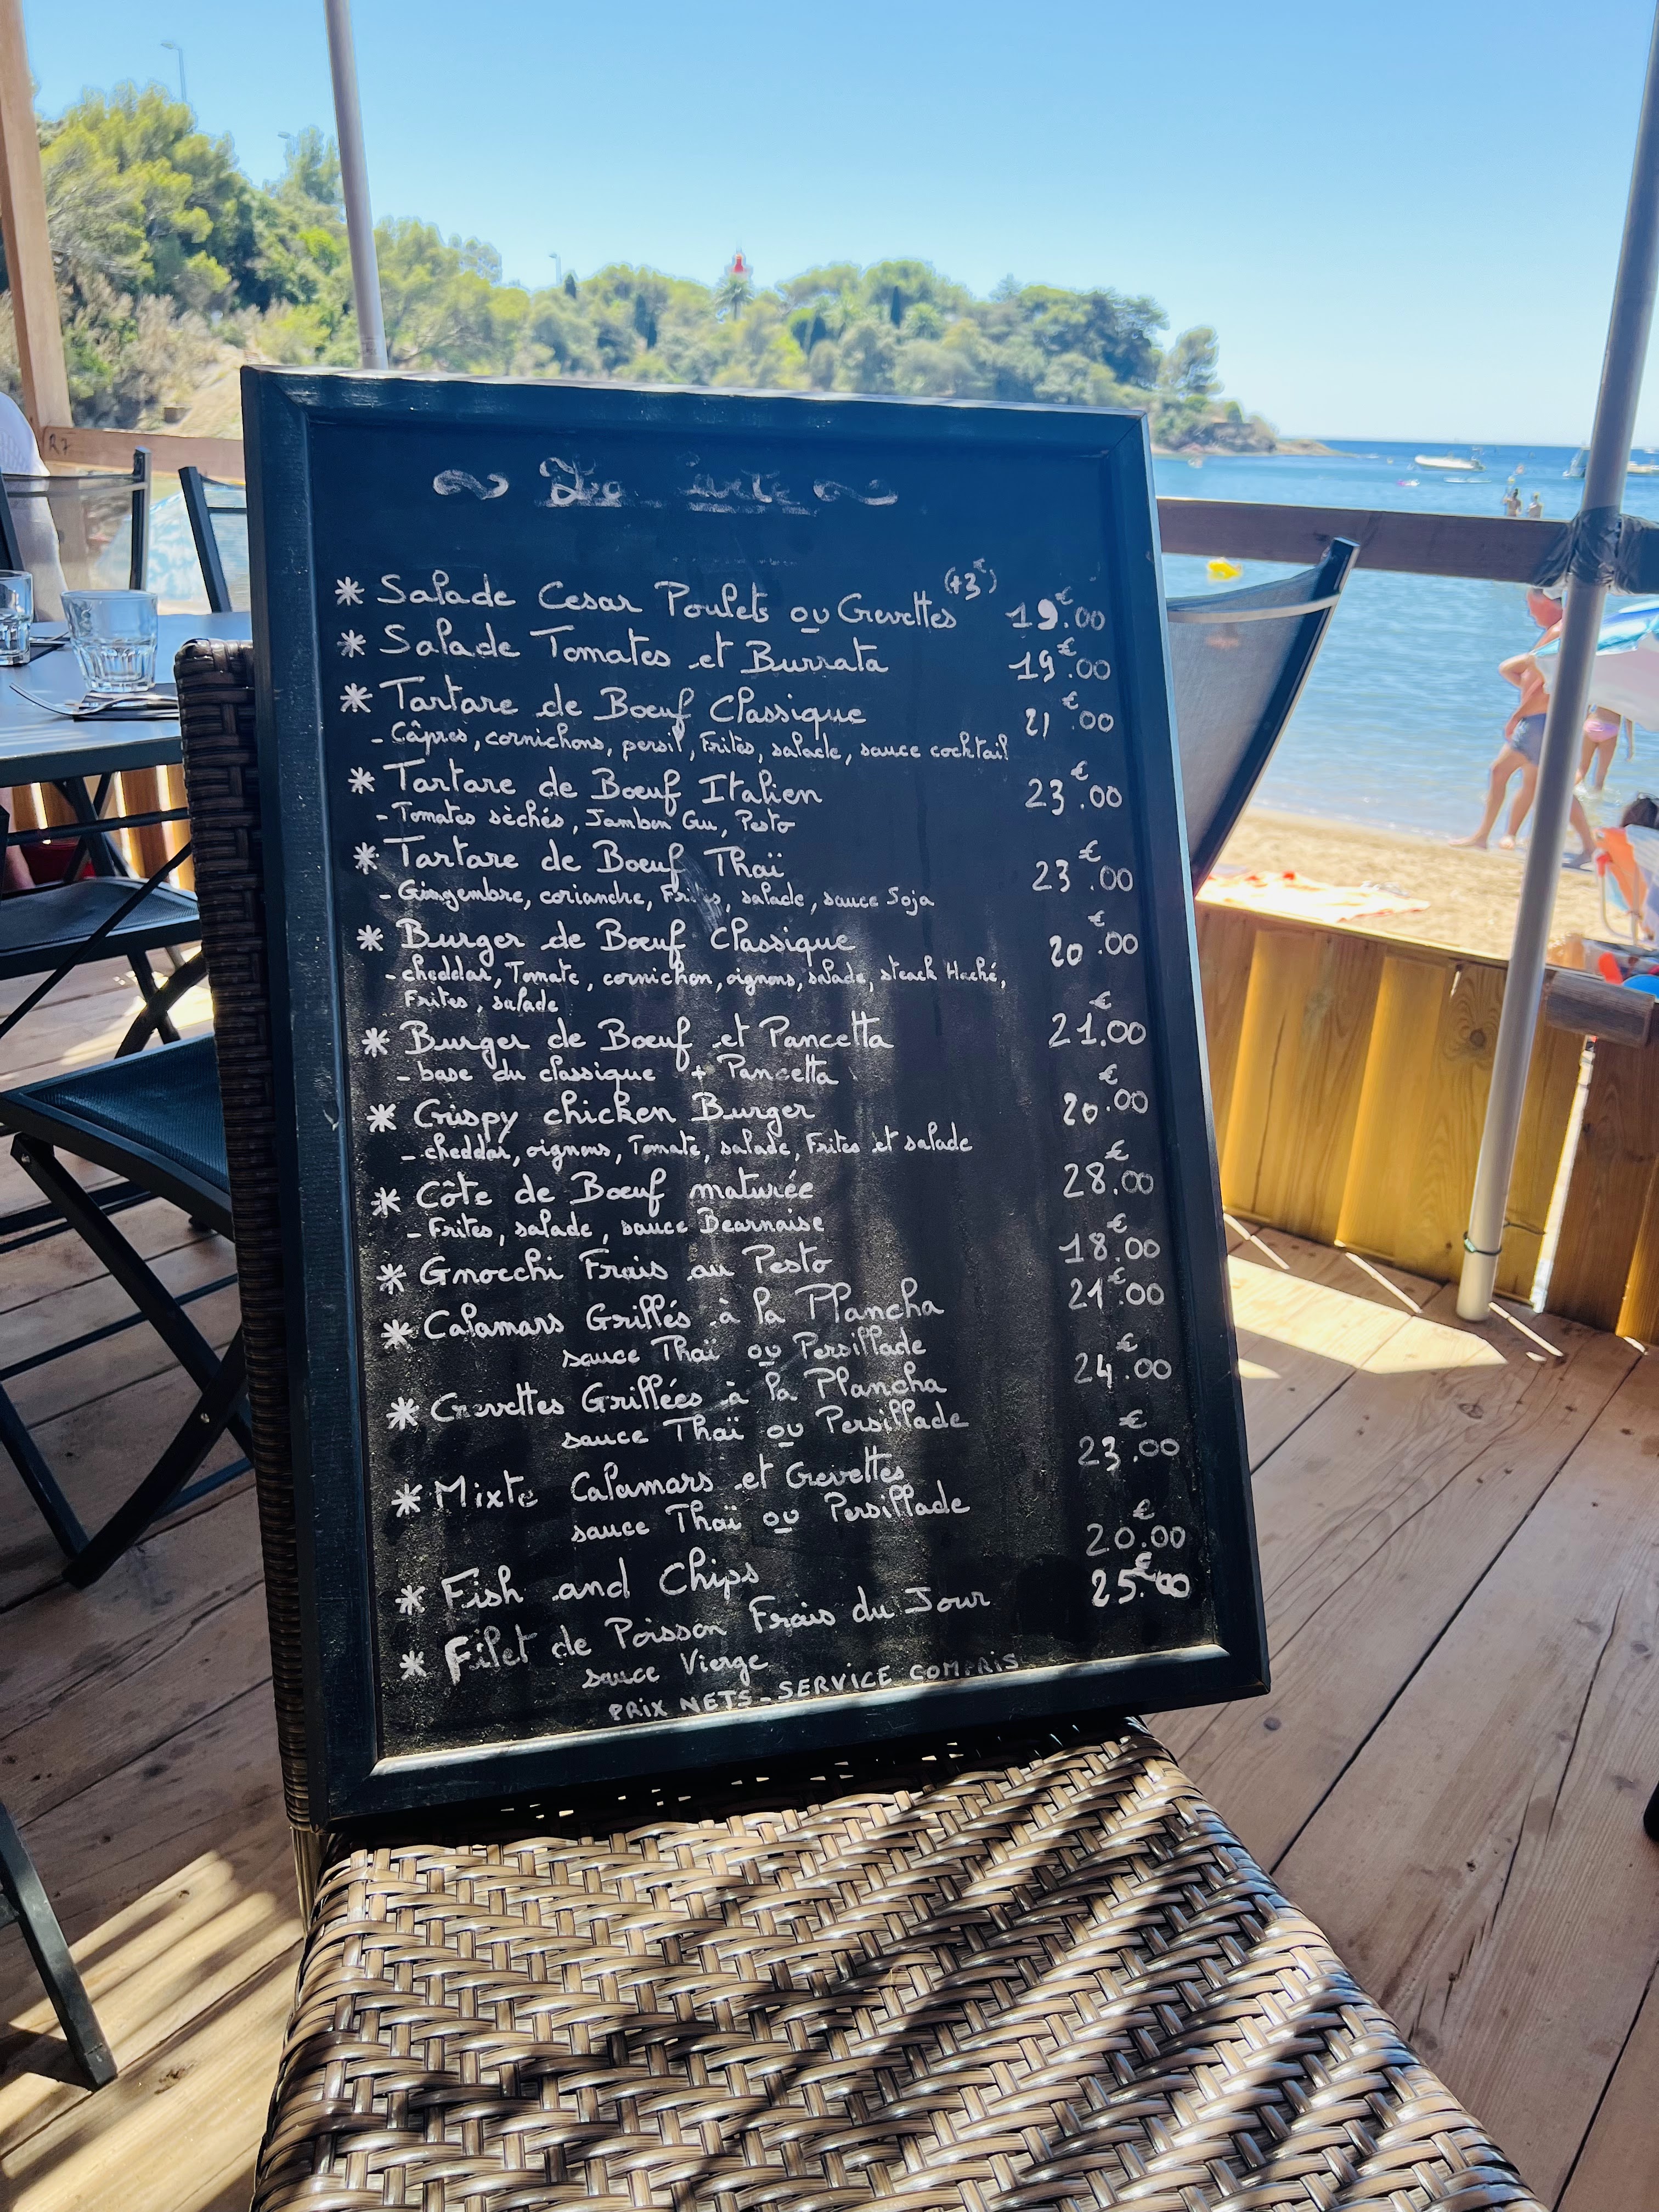 R7
La carte
* Salade Cesar Poulets ou Crevettes (+3€) 19€.00
* Salade Tomates et Burrata 19€.00
* Tartare de Bœuf Classique 21€.00
- Câpres, cornichons, persil, Frites, salade, sauce cocktail
* Tartare de Bœuf Italien 23€.00
- Tomates sèchés, Jambon Cru, Pesto
* Tartare de Bœuf Thaï 23€.00
- Gingembre, coriandre, Frites, salade, sauce Soja
* Burger de Bœuf Classique 20€.00
- cheddar, Tomate, cornichon, oignons, salade, steack Haché,
Frites, salade
* Burger de Bœuf et Pancetta 21€.00
- base du classique + Pancetta
* Crispy chicken Burger 20€.00
- cheddar, oignons, Tomate, salade, Frites et salade
* Côte de Bœuf maturée 28€.00
- Frites, salade, sauce Bearnaise
* Gnocchi Frais au Pesto 18€.00
* Calamars Grillés à la Plancha 21€.00
sauce Thaï ou Persillade
* Crevettes Grillées à la Plancha 24€.00
sauce Thaï ou Persillade
* Mixte Calamars et Crevettes 23€.00
sauce Thaï ou Persillade
* Fish and Chips 20€.00
* Filet de Poisson Frais du Jour 25€.00
sauce Vierge
PRIX NETS - SERVICE COMPRIS